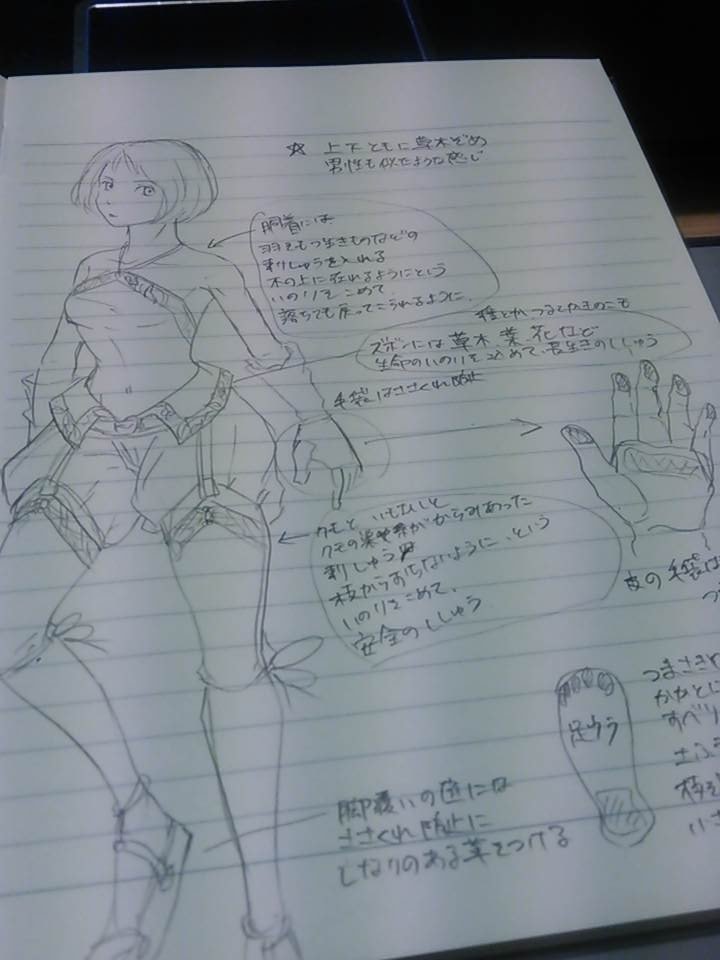 ☆ 上下ともに草木ぞめ
男性も似たような感じ
胴着には
羽をもつ生きものなどの
刺しゅうを入れる
木の上に在れるようにという
いのりをこめて、
落ちても戻ってこられるように、
種とか つるとかきのこも
ズボンには草木、葉、花など
生命のいのりを込めて、長生きのししゅう
手袋はささくれ防止
クモと
クモの巣や糸がからみあった
刺しゅう
枝からおちないように、という
いのりをこめて、
安全のししゅう
皮の手袋は
つ
足ウラ
つまさきと
かかとに
すべり
脚覆いの
ささくれ防止に
しなりのある革をつける